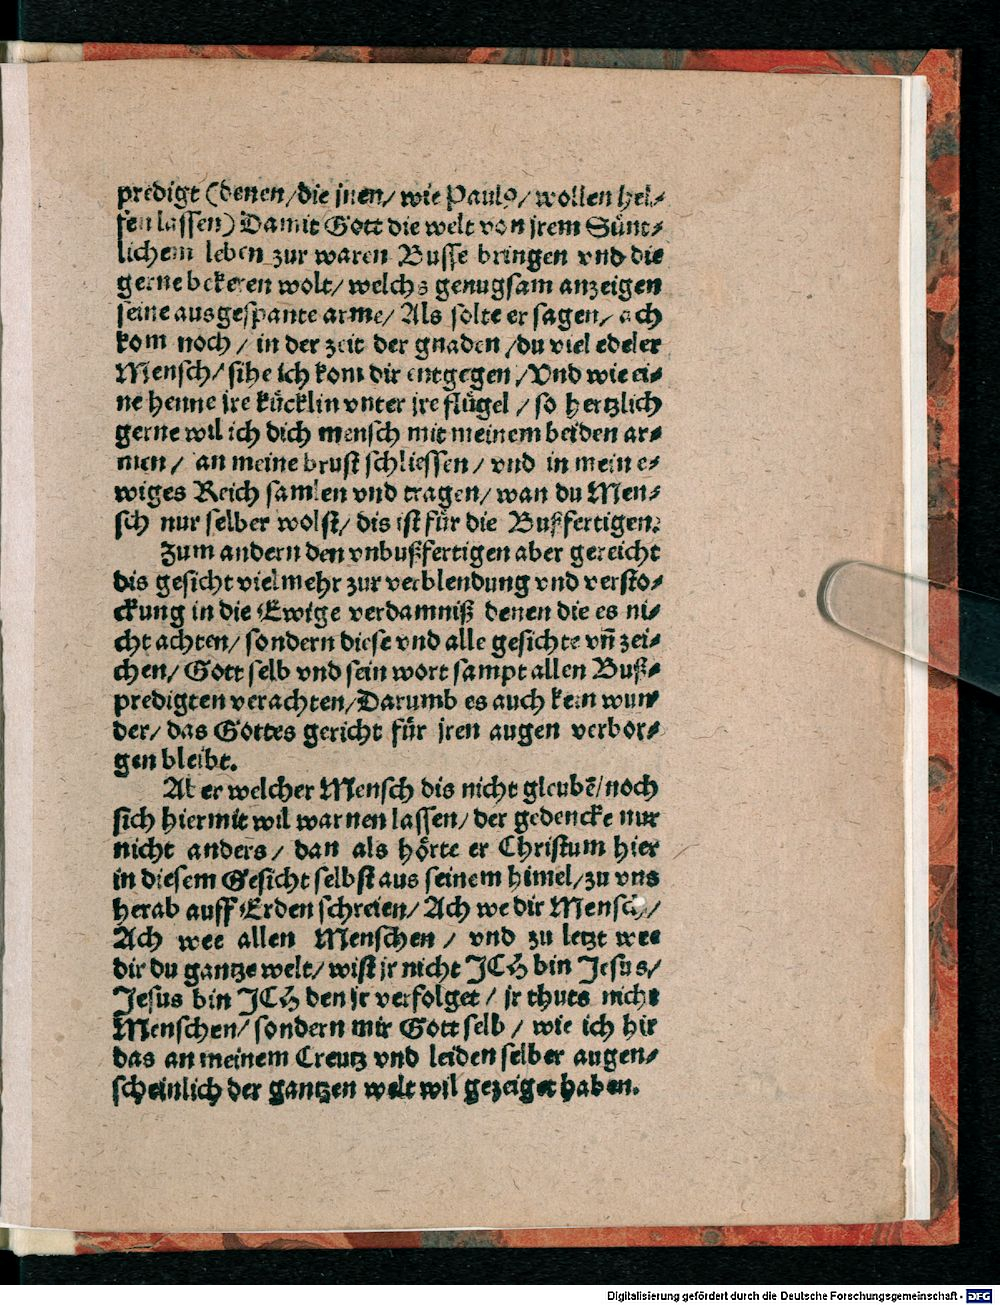 predigt (denen/die jnen/ wie Paulo/ wollen hel⸗
fen lassen) Damit Gott die welt von jrem Sünt⸗
lichem leben zur waren Busse bringen vnd die
gerne bekeren wolt/ welchs genugsam anzeigen
seine ausgespante arme/ Als solte er sagen/ ach
kom noch / in der zeit der gnaden /du viel edeler
Mensch/ sihe ich kom dir entgegen /Vnd wie ei⸗
ne henne jre kücklin vnter jre flügel / so hertzlich
gerne wil ich dich mensch mit meinem beiden ar⸗
men / an meine brust schliessen / vnd in mein e⸗
wiges Reich samlen vnd tragen/ wan du Men⸗
sch nur selber wolst/ dis ist für die Bußfertigen.
Zum andern den vnbußfertigen aber gereicht
dis gesicht vielmehr zur verblendung vnd versto⸗
ckung in die Ewige verdamniß denen die es ni⸗
cht achten/ sondern diese vnd alle gesichte vñ zei⸗
chen/ Gott selb vnd sein wort sampt allen Buß⸗
predigten verachten/Darumb es auch kein wun
der/ das Gottes gericht für jren augen verbor⸗
gen bleibt.
Aber welcher Mensch dis nicht gleubẽ/noch
sich hiermit wil warnen lassen/ der gedencke nur
nicht anders/ dan als hörte er Christum hier
in diesem Gesicht selbst aus seinem himel/zu vns
herab auff Erden schreien/ Ach we dir Mensch/
Ach wee allen Menschen / vnd zu letzt wee
dir du gantze welt/ wist jr nicht JCH bin Jesus/
Jesus bin JCH den jr verfolget / jr thuts nicht
Menschen/ sondern mir Gott selb / wie ich hir
das an meinem Creutz vnd leiden selber augen⸗
scheinlich der gantzen welt wil gezeiget haben.
Digitalisierung gefördert durch die Deutsche Forschungsgemeinschaft - DFG